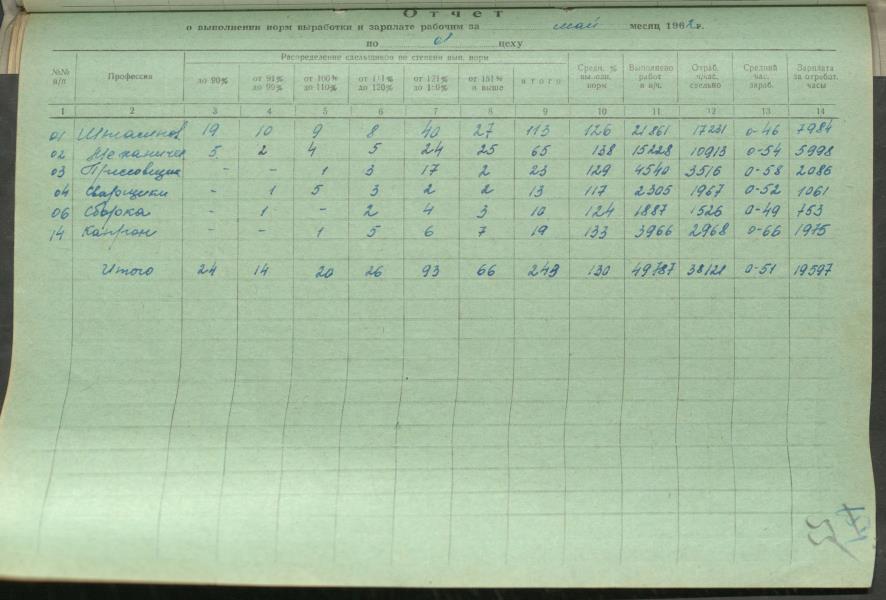 Отчет
о выполнении норм выработки и зарплате рабочим за май месяц 1962 г.
по 61 цеху
№№ п/п Профессия Распределение сдельщиков по степени вып. норм Средн. % выполн. норм Выполнено работ в н/ч. Отраб. ч/час. сдельно Средний час. зараб. Зарплата за отработ. часы
до 90% от 91% до 99% от 100% до 110% от 111% до 120% от 121% до 150% от 151% и выше итого
1 2 3 4 5 6 7 8 9 10 11 12 13 14
01 Штамповщ 19 10 9 8 40 27 113 126 21861 17231 0-46 7984
02 Механичес 5 2 4 5 24 25 65 138 15228 10913 0-54 5998
03 Прессовщик - - 1 3 17 2 23 129 4540 3516 0-58 2086
04 Сварщики - 1 5 3 2 2 13 117 2305 1967 0-52 1061
06 Сборка - 1 - 2 4 3 10 124 1887 1526 0-49 753
14 Капрон - - 1 5 6 7 19 133 3966 2968 0-66 1975
Итого 24 14 20 26 93 66 243 130 49787 38121 0-51 19597